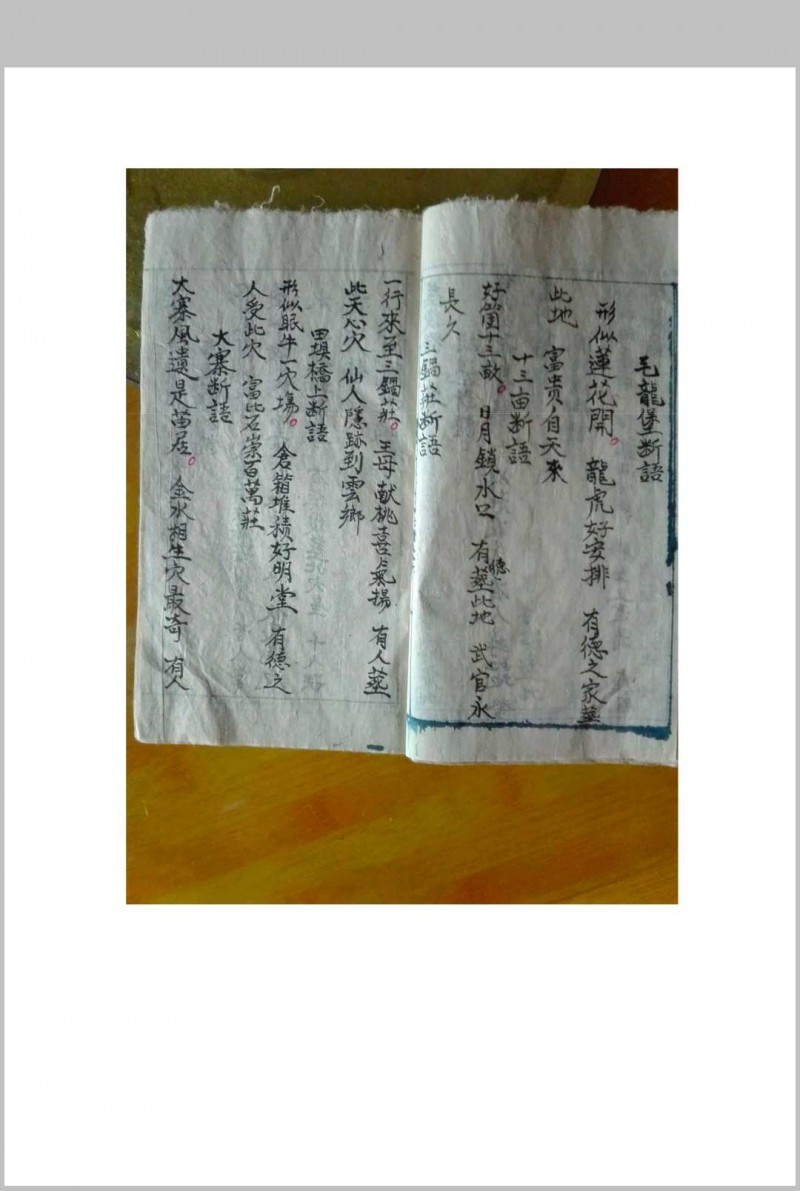 毛龍堡断語
形似蓮花開。龍虎好安排 有德之家塟
此地 富贵自天來
十三亩断語
好箇十三畝。日月鎖水口 有德塟此地 武官永
長久
三鍋莊断語
一行來至三鍋莊。王母献桃喜氣揚 有人塟
此天心穴 仙人隱跡到雲鄉
田垻橋上断語
形似眠牛一穴塲。倉箱堆積好明堂 有德之
人受此穴 富比石崇百萬莊
大寨断語
大寨風遺是苗居。金水相生穴最奇 有人